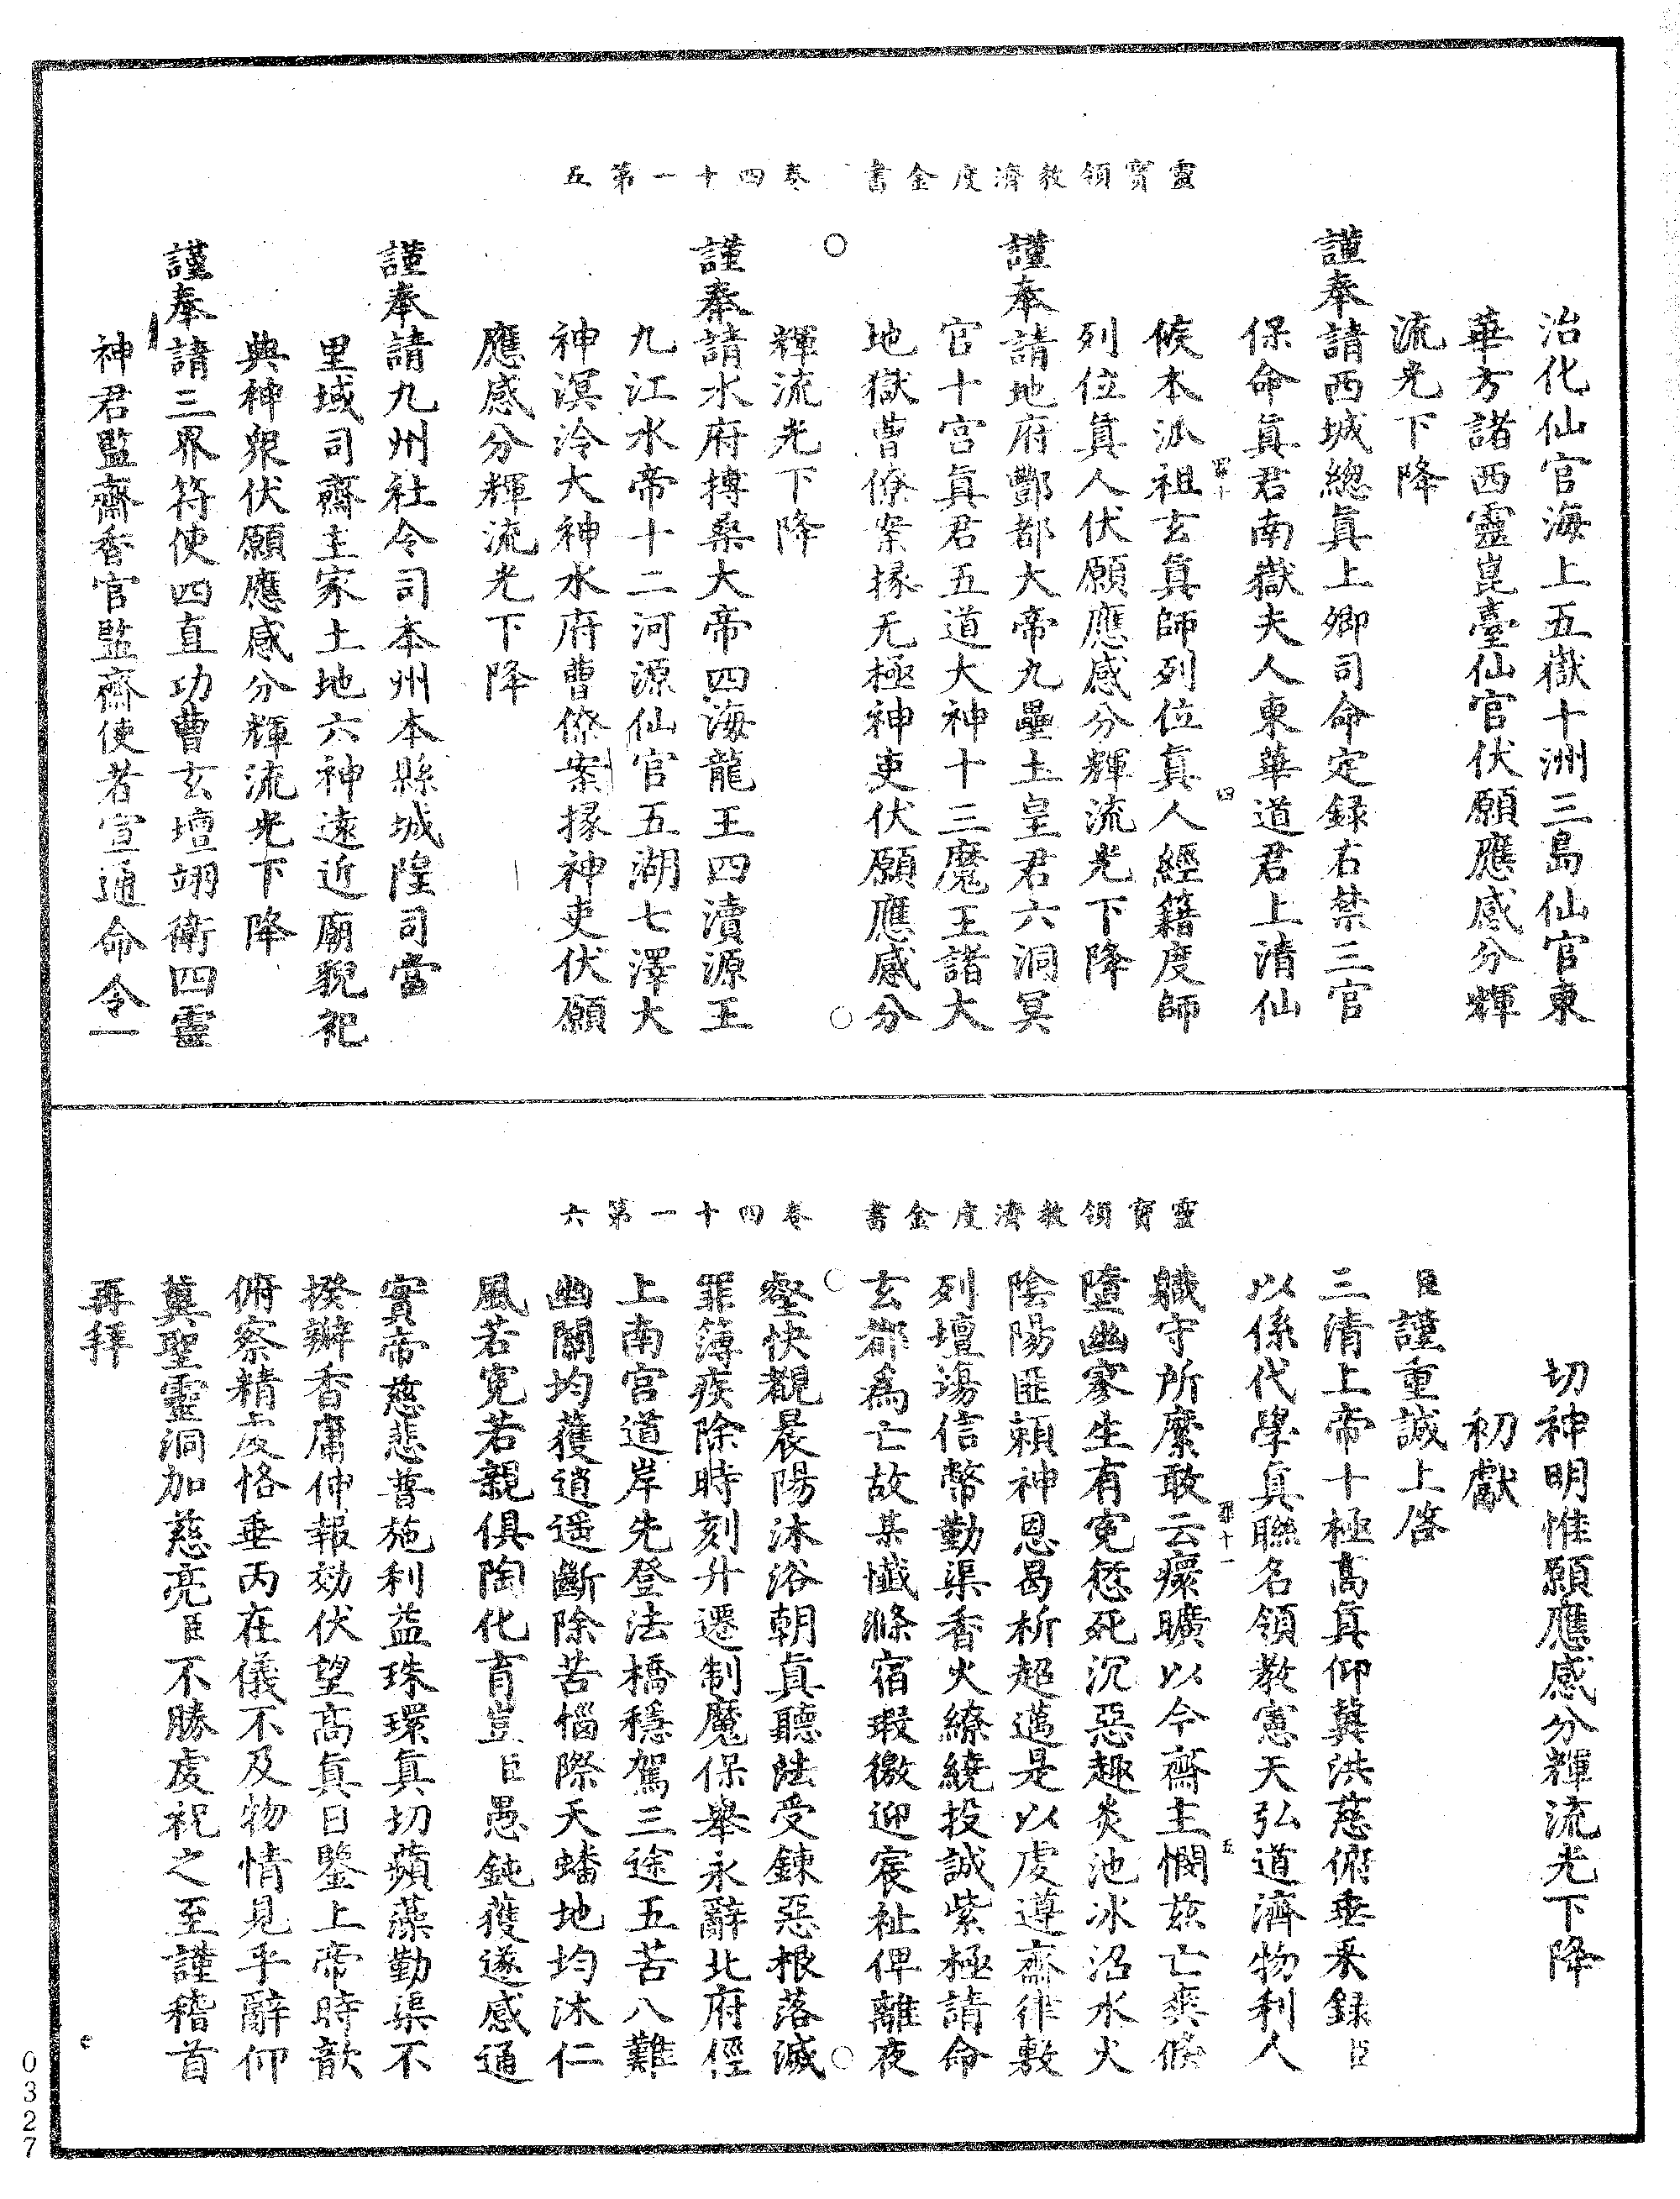 靈寶領教濟度金書　卷四十一第五
治化仙官海上五嶽十洲三島仙官東
華方諸西靈崑臺仙官伏願應感分輝
流光下降
謹奉請西城總真上卿司命定録右禁三官
保命真君南嶽夫人東華道君上清仙
四十
四
候本派祖玄真師列位真人經籍度師
列位真人伏願應感分輝流光下降
謹奉請地府酆都大帝九壘土皇君六洞冥
官十宮真君五道大神十三魔王諸大
地獄曹僚案掾无極神吏伏願應感分
輝流光下降
謹奉請水府搏桑大帝四海龍王四瀆源王
九江水帝十二河源仙官五湖七澤大
神溟泠大神水府曹僚案掾神吏伏願
應感分輝流光下降
謹奉請九州社令司本州本縣城隍司當
里域司齋主家土地六神遠近廟貌祀
典神衆伏願應感分輝流光下降
謹奉請三界符使四直功曹玄壇翊衛四靈
神君監齋香官監齋使者宣通命令一
靈寶領教濟度金書　卷四十一第六
切神明惟願應感分輝流光下降
初獻
臣謹重誠上啓
三清上帝十極高真仰冀洪慈俯垂采録臣
以係代學真聯名領教憲天弘道濟物利人
十一
五
職守所縻敢云瘝曠以今齋主憫玆亡爽倏
墮幽寥生有寃愆死沉惡趣炎池冰沼水火
陰陽匪賴神恩曷析超邁是以虔遵齋律敷
列壇場信幣勤渠香火繚繞投誠紫極請命
玄都爲亡故某懺滌宿瑕徼迎宸祉俾離夜
壑快覩晨陽沐浴朝真聽法受鍊惡根落滅
罪簿疾除時刻升遷制魔保舉永辭北府徑
上南宮道岸先登法橋穩駕三途五苦八難
幽關均獲逍遥斷除苦惱際天蟠地均沐仁
風若寃若親俱陶化育豈臣愚鈍獲遂感通
實帝慈悲普施利益珠環真切蘋藻勤渠不
揆辦香庸伸報効伏望高真日鑒上帝時歆
俯察精虔恪垂丙在儀不及物情見乎辭仰
冀聖靈洞加慈亮臣不勝虔祀之至謹稽首
再拜
0327